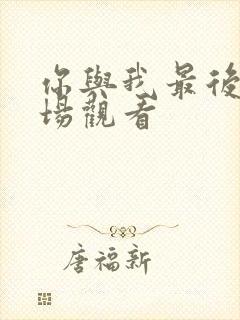 你與我最後
場觀看
唐福新